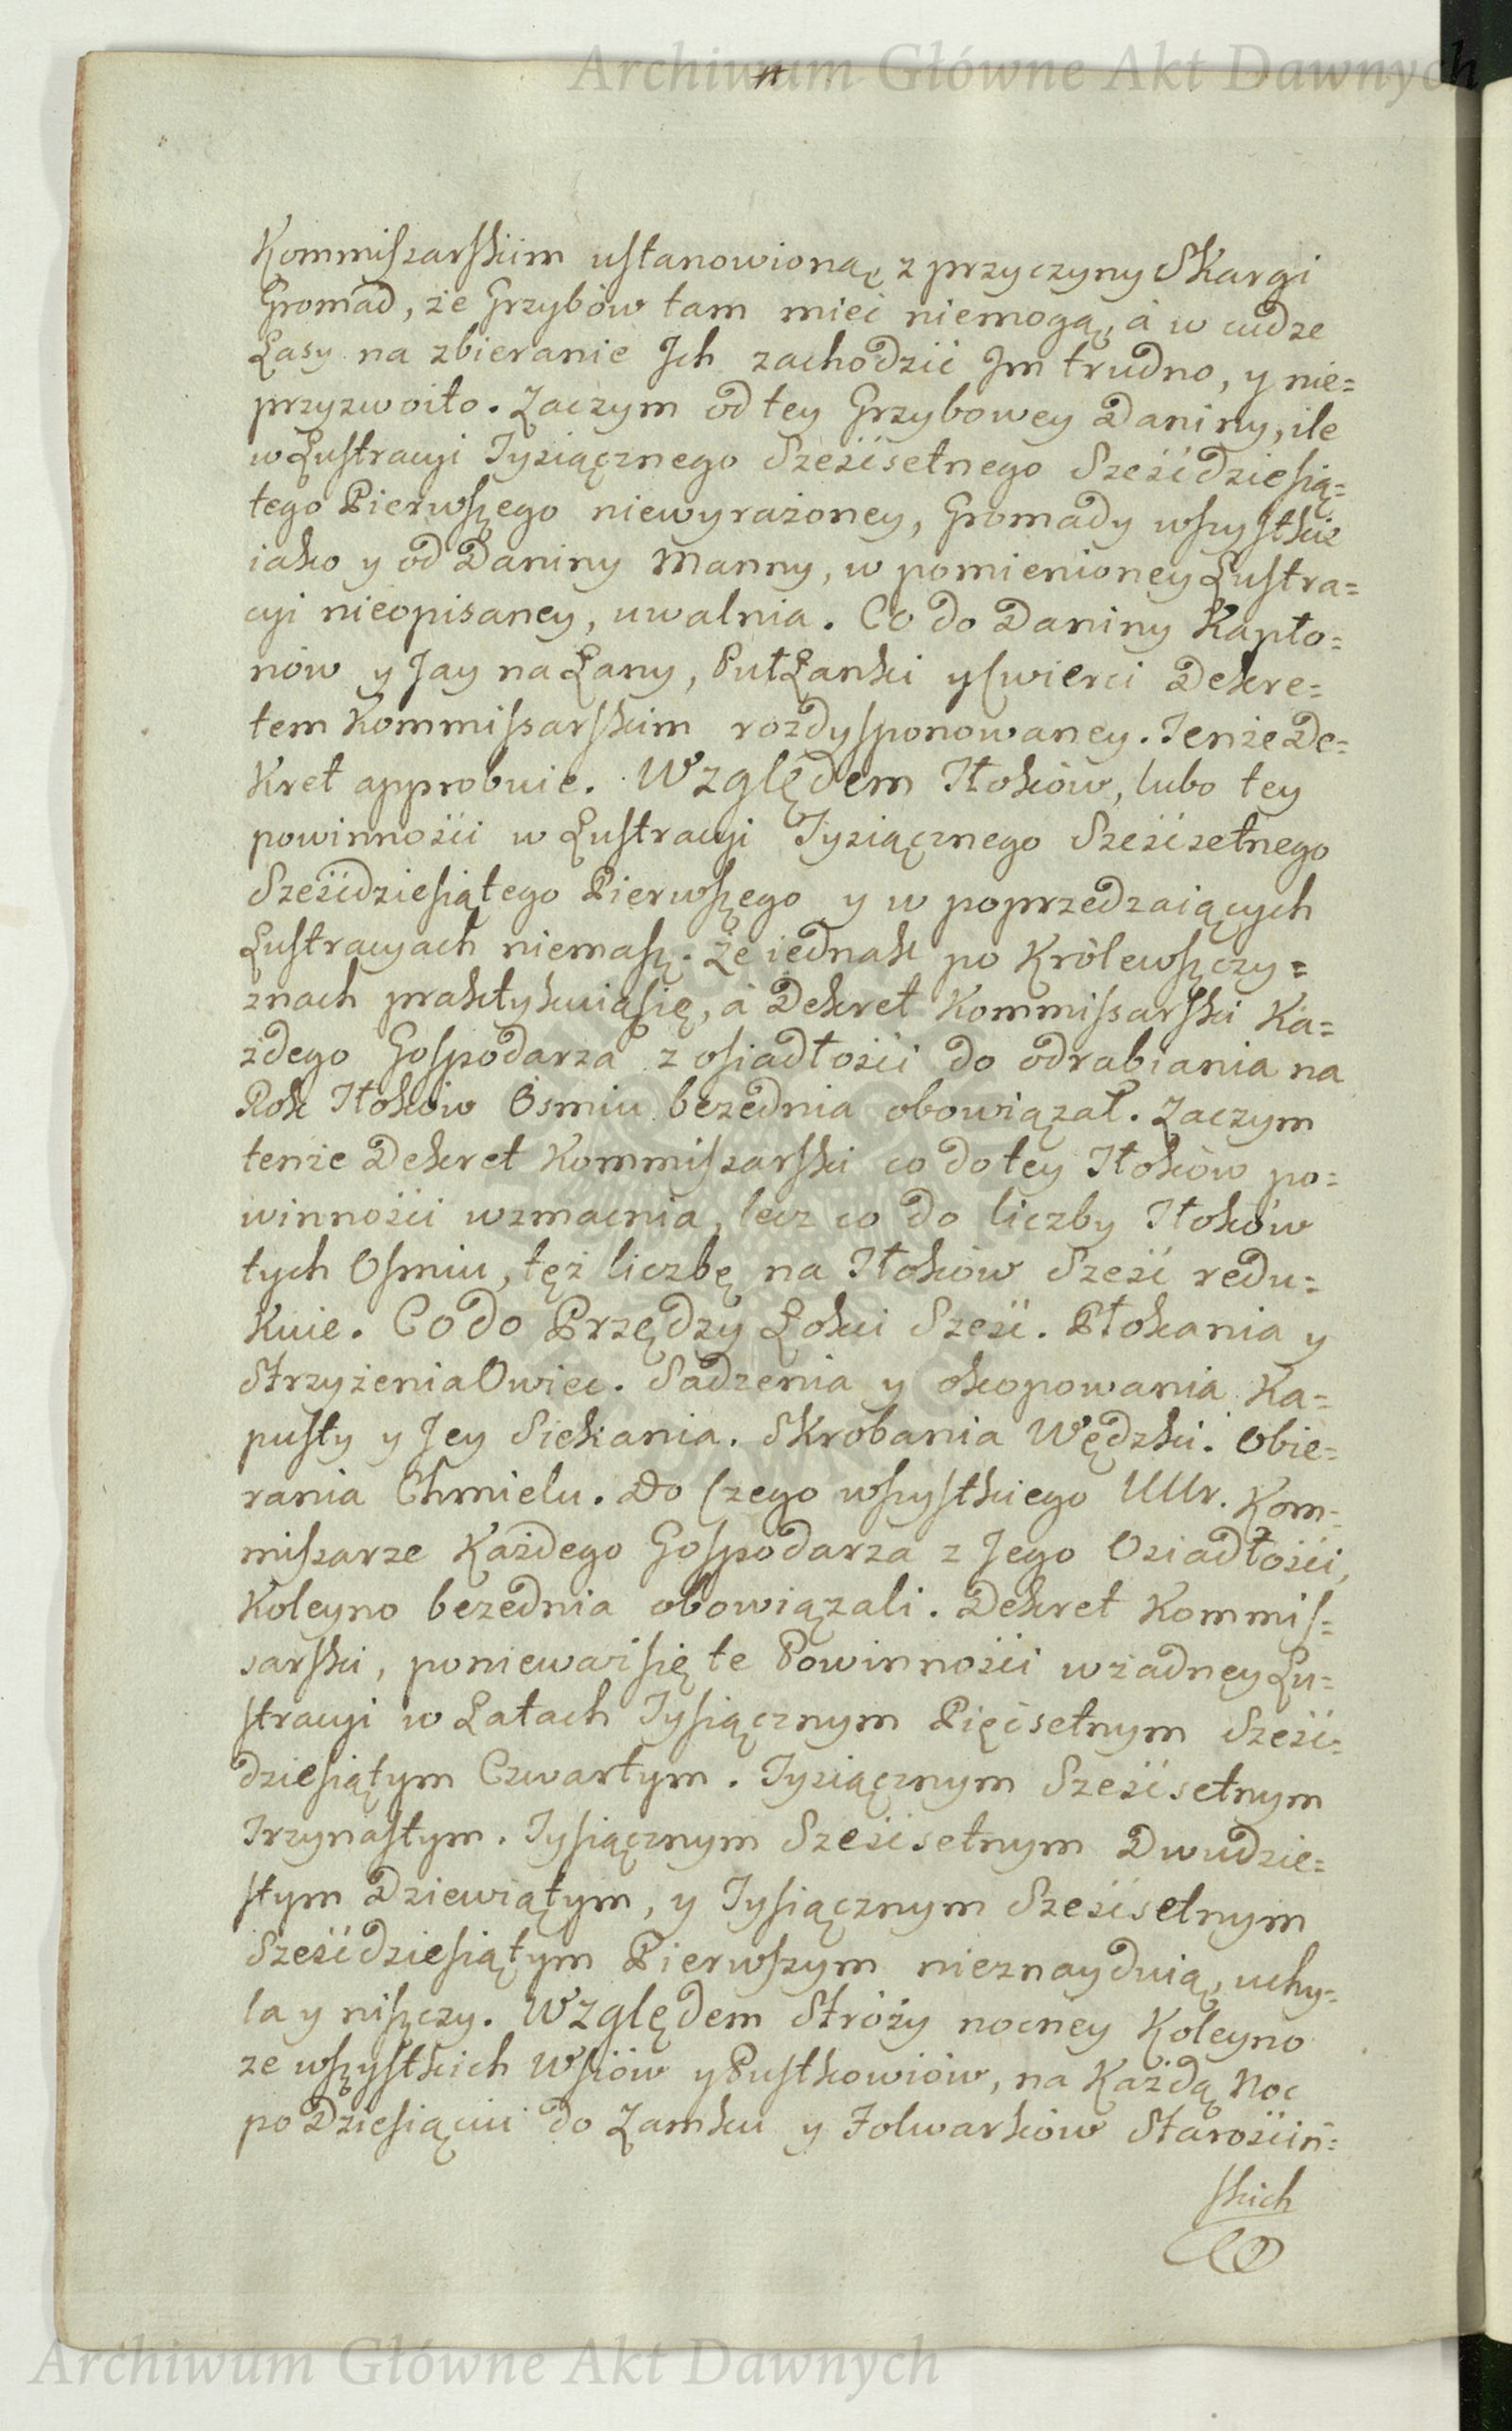 Archiwum Główne Akt Dawnych
Kommiſsarſkiim uſtanowioną z przyczyny Skargi
Gromad, że Grzybów tam mieć niemogą, á w cudze
Lasy na zbieranie Jch zachodzić Jm trudno, y nie=
przyzwoito. Zaczym od tey Grzybowey Daniny, ile
w Luſtracyi Tysiącznego Sześćsetnego Sześćdzieſią=
tego Pierwſzego niewyrażoney, Gromady wſzyſtkie
iako y od Daniny Manny, w pomienioney Luſtra=
cyi nieopisaney, uwalnia. Co do Daniny Kapło=
nów y Jay na Łany, PułŁanki y Cwierci Dekre=
tem Kommiſsarſkim rozdyſponowaney. Tenże De=
kret approbuie. Względem Tłoków, lubo tey
powinności w Luſtracyi Tysiącznego Sześćsetnego
Sześćdzieſiątego Pierwſzego y w poprzedzaiących
Luſtracyach niemaſz. Że iednak po Królewſzczy=
znach praktykuiąſię, á Dekret Kommiſsarſki Ka=
żdego Goſpodarza z oſiadłości do odrabiania na
Rok Tłoków Osmiu bezednia obowiązał. Zaczym
tenże Dekret Kommiſsarſki co do tey Tłoków po=
winności wzmacnia, lecz co do liczby Tłoków
tych Oſmiu, tęż liczbę na Tłoków Sześć redu=
kuie. Co do Przędzy Łokci Sześć. Płokania y
Strzyżenia Owiec. Sadzenia y okopowania Ka=
puſty y Jey Siekania. Skrobania Wędzki. Obie=
rania Chmielu. Do Czego wſzyſtkiego UUr. Kom=
miſsarze Każdego Goſpodarza z Jego Osiadłości,
Koleyno bezednia obowiązali. Dekret Kommiſ=
sarſki, ponieważ ſię te Powinności w żadney Lu=
ſtracyi w Latach Tyſiącznym Pięćsetnym Sześć=
dzieſiątym Czwartym. Tysiącznym Sześćsetnym
Trzynaſtym. Tyſiącznym Sześćsetnym Dwudzie=
ſtym Dziewiątym, y Tyſiącznym Sześćsetnym
Sześćdzieſiątym Pierwſzym nieznayduią, uchy=
la y niſzczy. Względem Stróży nocney Koleyno
ze wſzyſtkich Wſiów y Puſtkowiów, na Każdą Noc
po Dzieſiąciu do Zamku y Folwarków Starościń=
ſkich
Archiwum Główne Akt Dawnych